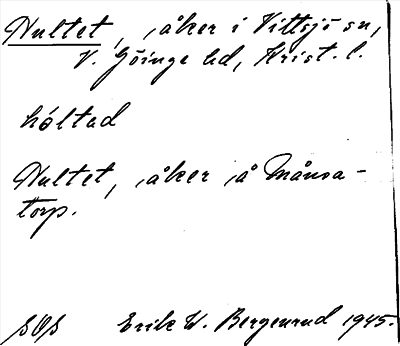 Hultet, åker i Vittsjö sn,
V. Göinge hd, Krist. l.
hóltad
Hultet, åker å Månsa-
torp.
SOS Erik W. Bergenrud 1945.